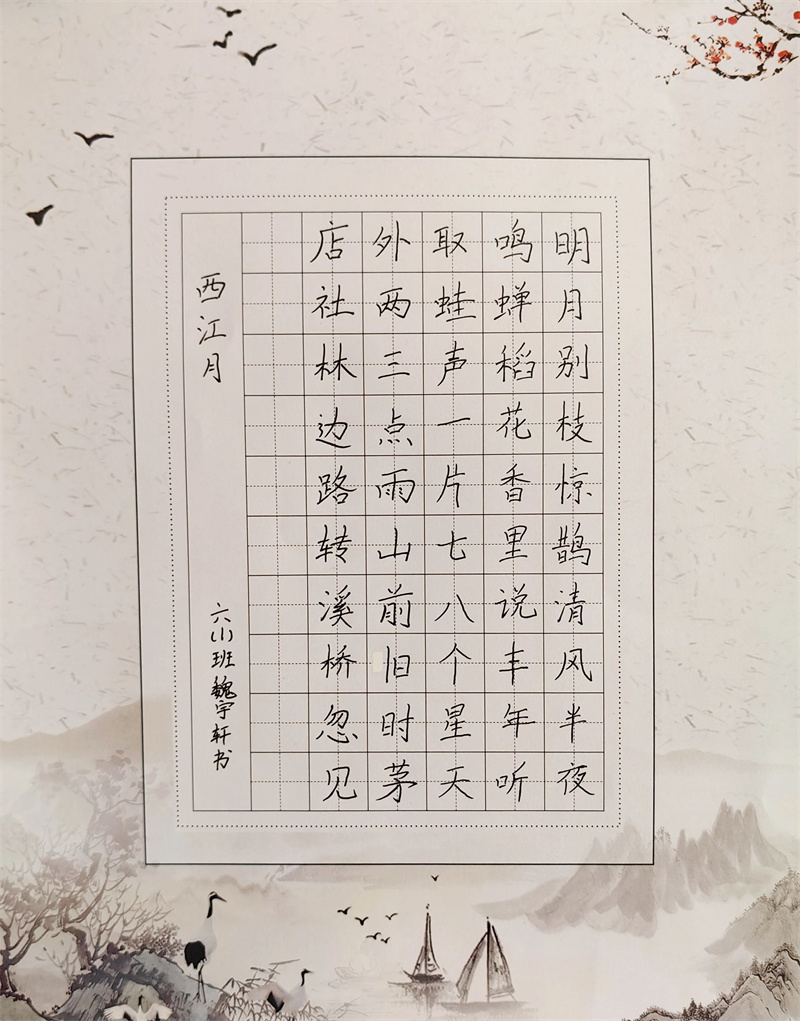 明月别枝惊鹊清风半夜
鸣蝉稻花香里说丰年听
取蛙声一片七八个星天
外两三点雨山前旧时茅
店社林边路转溪桥忽见
西江月
六(1)班魏宇轩书